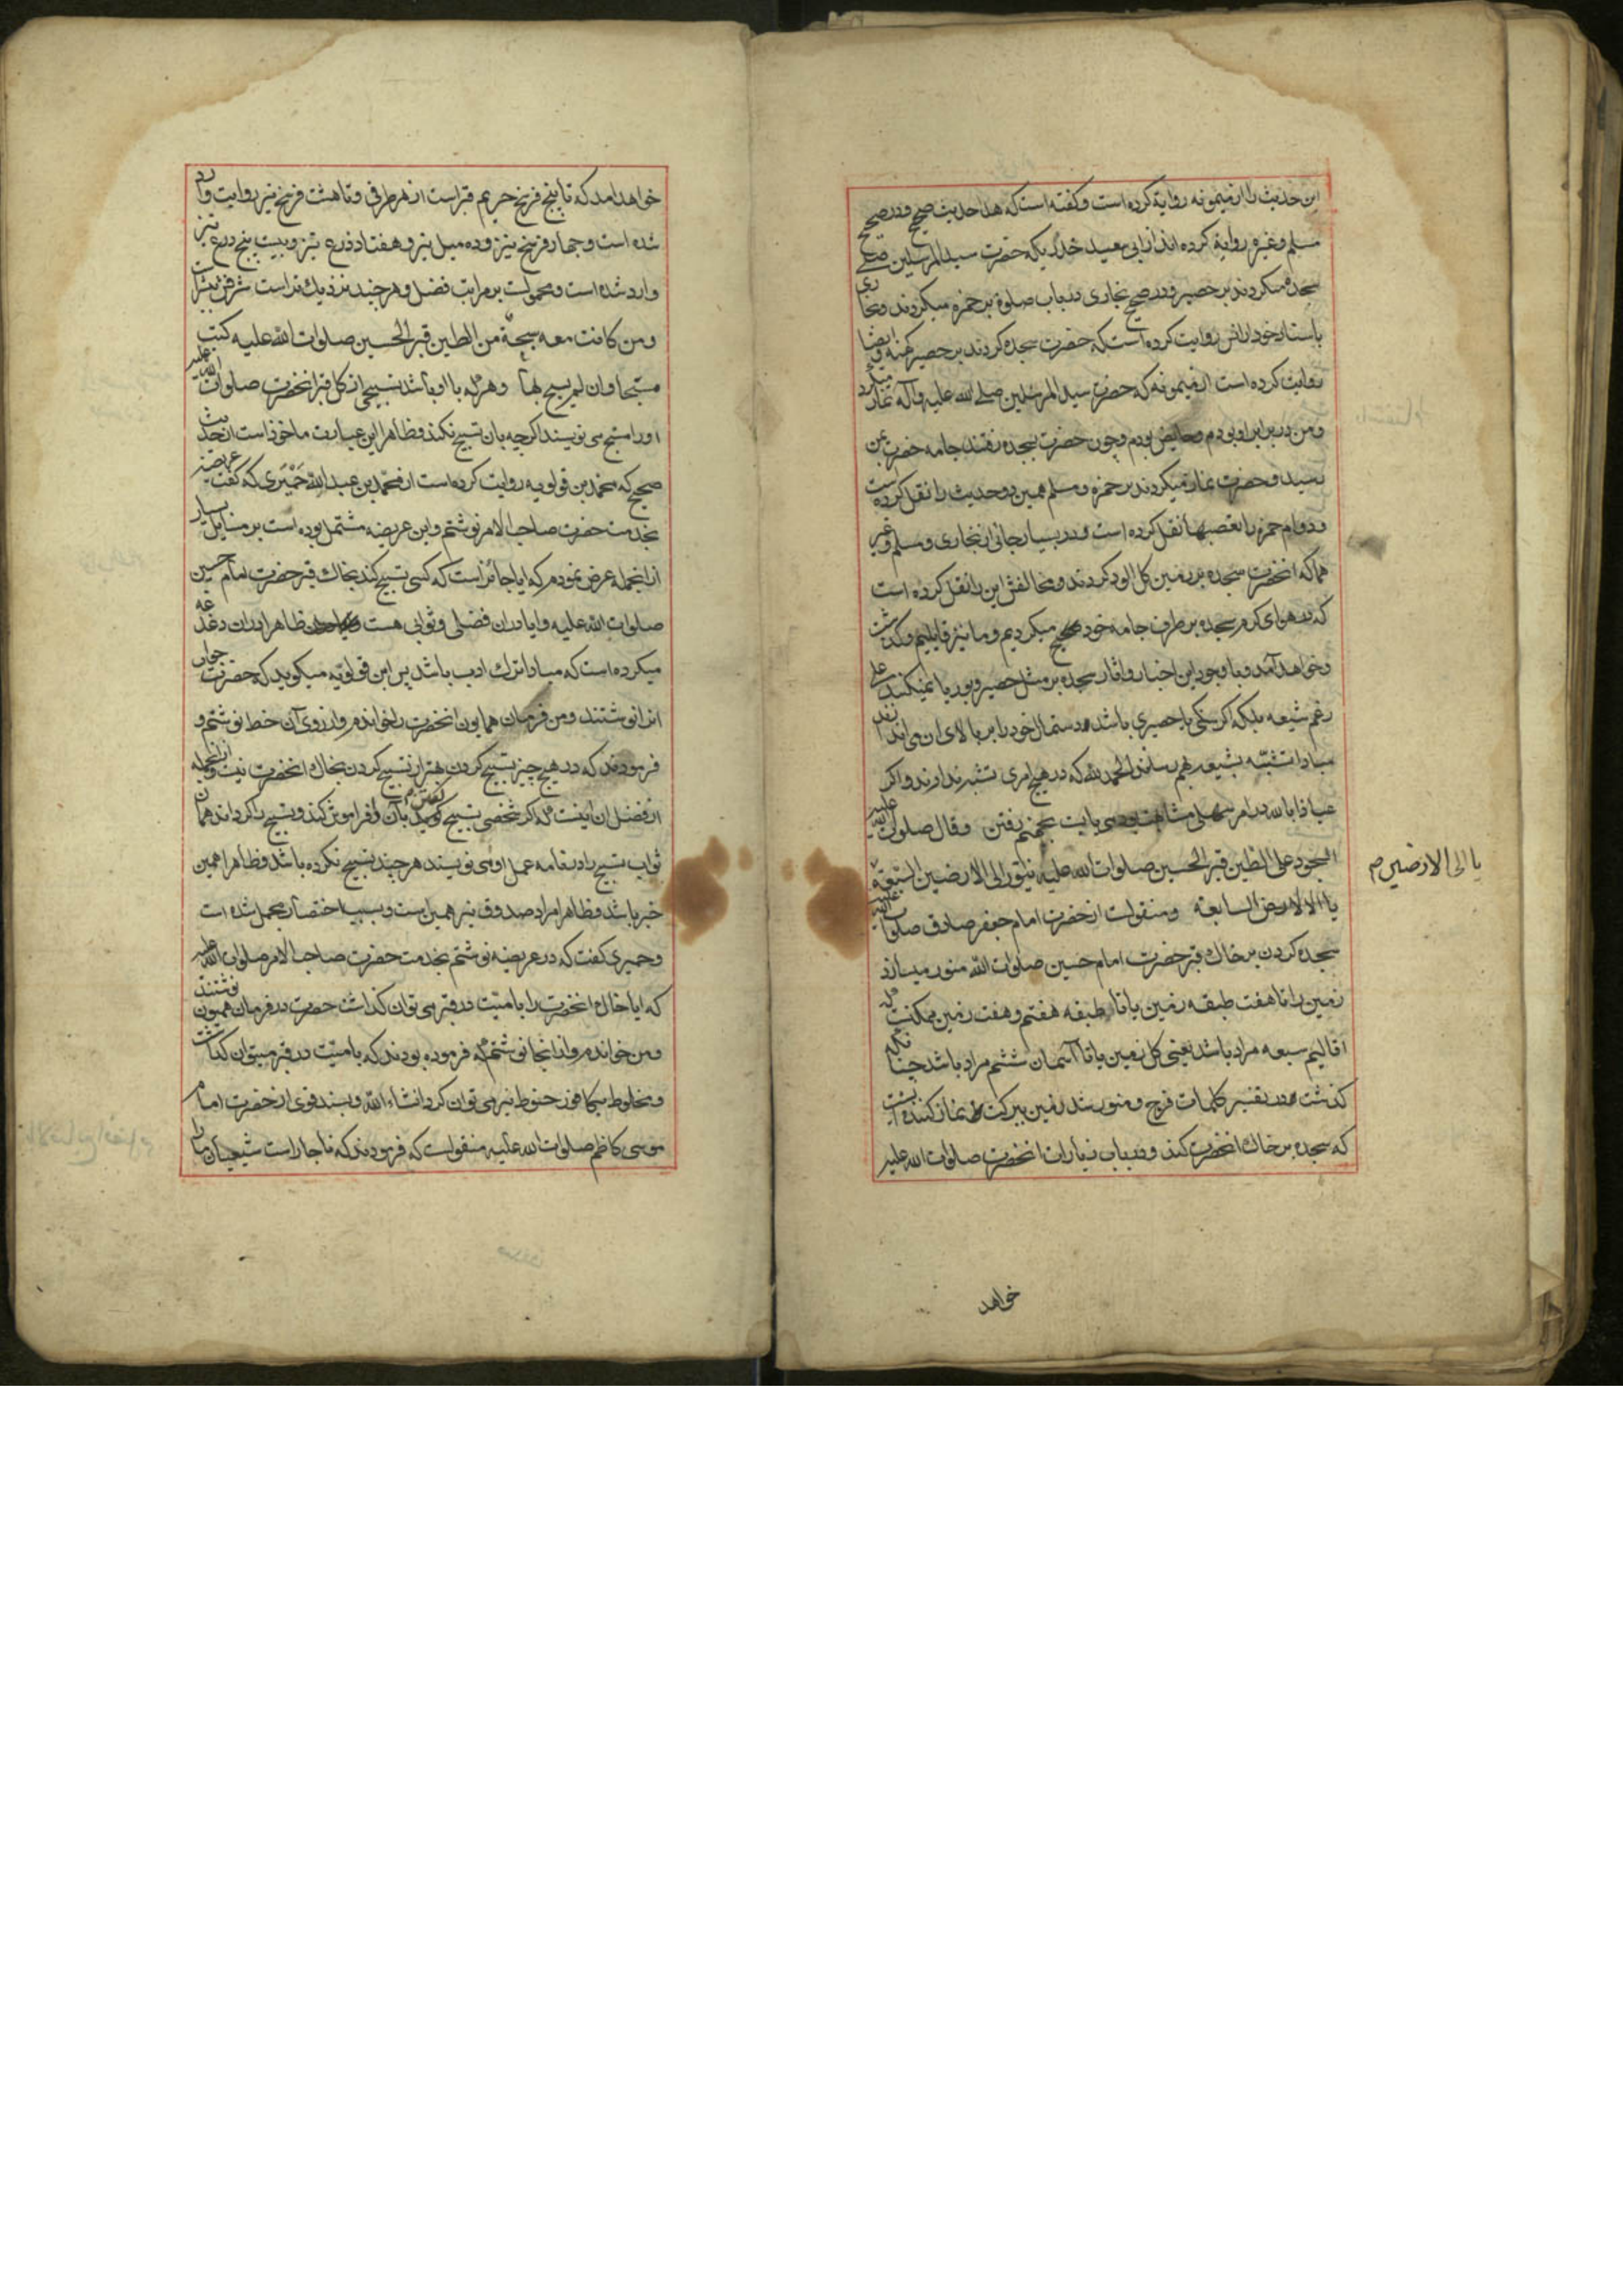 این حدیث را از میمونه روایة کرده است و کفته است که هذا حدیث صحیح و در صحیح
مسلم و غیره روایة کرده اند از ابی سعید خدری که حضرت سید المرسلین صلی
سجده میکردند بر حصیر و در صحیح بخاری در باب صلوة بر خمره میکردند و بخاری
باسناد خود از انس روایت کرده است که حضرت سجده کردند بر حصیر کهنه و ایضا
روایت کرده است از میمونه که حضرت سید المرسلین صلی الله علیه و آله نماز میکرد
و من در برابر او بودم و حایض بودم و چون حضرت بسجده رفتند جامه حضرت بمن
رسید و حضرت نماز میکردند بر خمره و مسلم همین دو حدیث را نقل کرده است
و دوام خمره را بغصبها نقل کرده است و در بسیار جائی از بخاری و مسلم و غیر
هما که انحضرت سجده بر زمین کل الود کردند و مخالفش این را نقل کرده است
که در هوای کرم سجده بر طرف جامه خود میکردیم و ما نیز قایلیم و کذشت
و خواهد آمد و با وجود این اخبار و اثار سجده بر مثل حصیر و بوریا نمیکنند علی
رغم شیعه بلکه اکر سنکی یا حصیری باشد دستمال خود را بر بالای ان می اندازند
مبادا تشبّه بشیعه بهم رسانند و الحمد لله که در هیچ امری تشبه ندارند و اکر
عیاذا بالله در امر سهلی مشابهت بودی بایست بجهنم رفتن و قال صلوات الله علیه
السجود علی الطین قبر الحسین صلوات الله علیه ینوّر الی الارضین السّبعة
یا الی الارض السابعة و منقولست از حضرت امام جعفر صادق صلوات الله علیه
سجده کردن بر خاک قبر حضرت امام حسین صلوات الله منور میسازد
زمین را تا هفت طبقه زمین یا تا طبقه هفتم و هفت زمین ممکنست که
اقالیم سبعه مراد باشد یعنی کل زمین یا تا آسمان ششم مراد باشد چنانکه
کذشت در تفسیر کلمات فرج و منور شدن زمین ببرکت نماز کننده ایست
که سجده بر خاک انحضرت کند و در باب زیارات انحضرت صلوات الله علیه
یا الی الارضین م
خواهد
خواهد امد که تا پنج فرسخ حریم قبر است از هر طرفی و تا هشت فرسخ نیز روایت وارد
شده است و چهار فرسخ نیز و ده میل نیز و هفتاد ذرع نیز و بیست پنج ذرع نیز
وارد شده است و محمولست بر مراتب فضل و هر چند نزدیک تر است شرفش بیشتر است
و من کانت معه سبحة من الطین قبر الحسین صلوات الله علیه کتب
مسبّحا و ان لم یسبح بها و هر که با او باشد تسبیحی از کل قبر انحضرت صلوات الله علیه
او را مسبح می نویسند اکر چه بان تسبیح نکند و ظاهرا این عبارت ماخوذ است از حدیث
صحیح که محمد بن قولویه روایت کرده است از محمد بن عبد الله حمیری که کفت عریضه
بخدمت حضرت صاحب الامر نوشتم و این عریضه مشتمل بوده است بر مسایل بسیار
از انجمله عرض نمودم که ایا جائز است که کسی تسبیح کند بخاک قبر حضرت امام حسین
صلوات الله علیه و ایا دران فضلی و ثوابی هست ظاهرا دران دغدغه
میکرده است که مبادا ترک ادب باشد پس ابن قولویه میکوید که حضرت جواب
انرا نوشتند و من فرمان همایون انحضرت را خواندم و از روی آن خط نوشتم و
فرمودند که در هیچ چیز تسبیح کردن بهتر از تسبیح کردن بخاک انحضرت نیست و از انجمله
از فضل ان اینست که اکر شخصی تسبیح کوید بآن و فراموش کند و تسبیح را کرداند همان
ثواب تسبیح را در نامه عمل او می نویسند هر چند تسبیح نکرده باشد و ظاهرا همین
خبر باشد و ظاهرا مراد صدوق نیز همین است و بسبب اختصار مجمل شده است
و حمیری کفت که در عریضه نوشتم بخدمت حضرت صاحب الامر صلوات الله علیه
که ایا خاک انحضرت را با میّت در قبر می توان کذاشت حضرت در فرمان همیون نوشتند
و من خواندم و از انجا نوشتم که فرموده بودند که با میّت در قبر میتوان کذاشت
و مخلوط بکافور حنوط نیز می توان کرد انشاء الله و بسند قوی از حضرت امام
موسی کاظم صلوات الله علیه منقولست که فرمودند که ناچار است شیعیان ما را